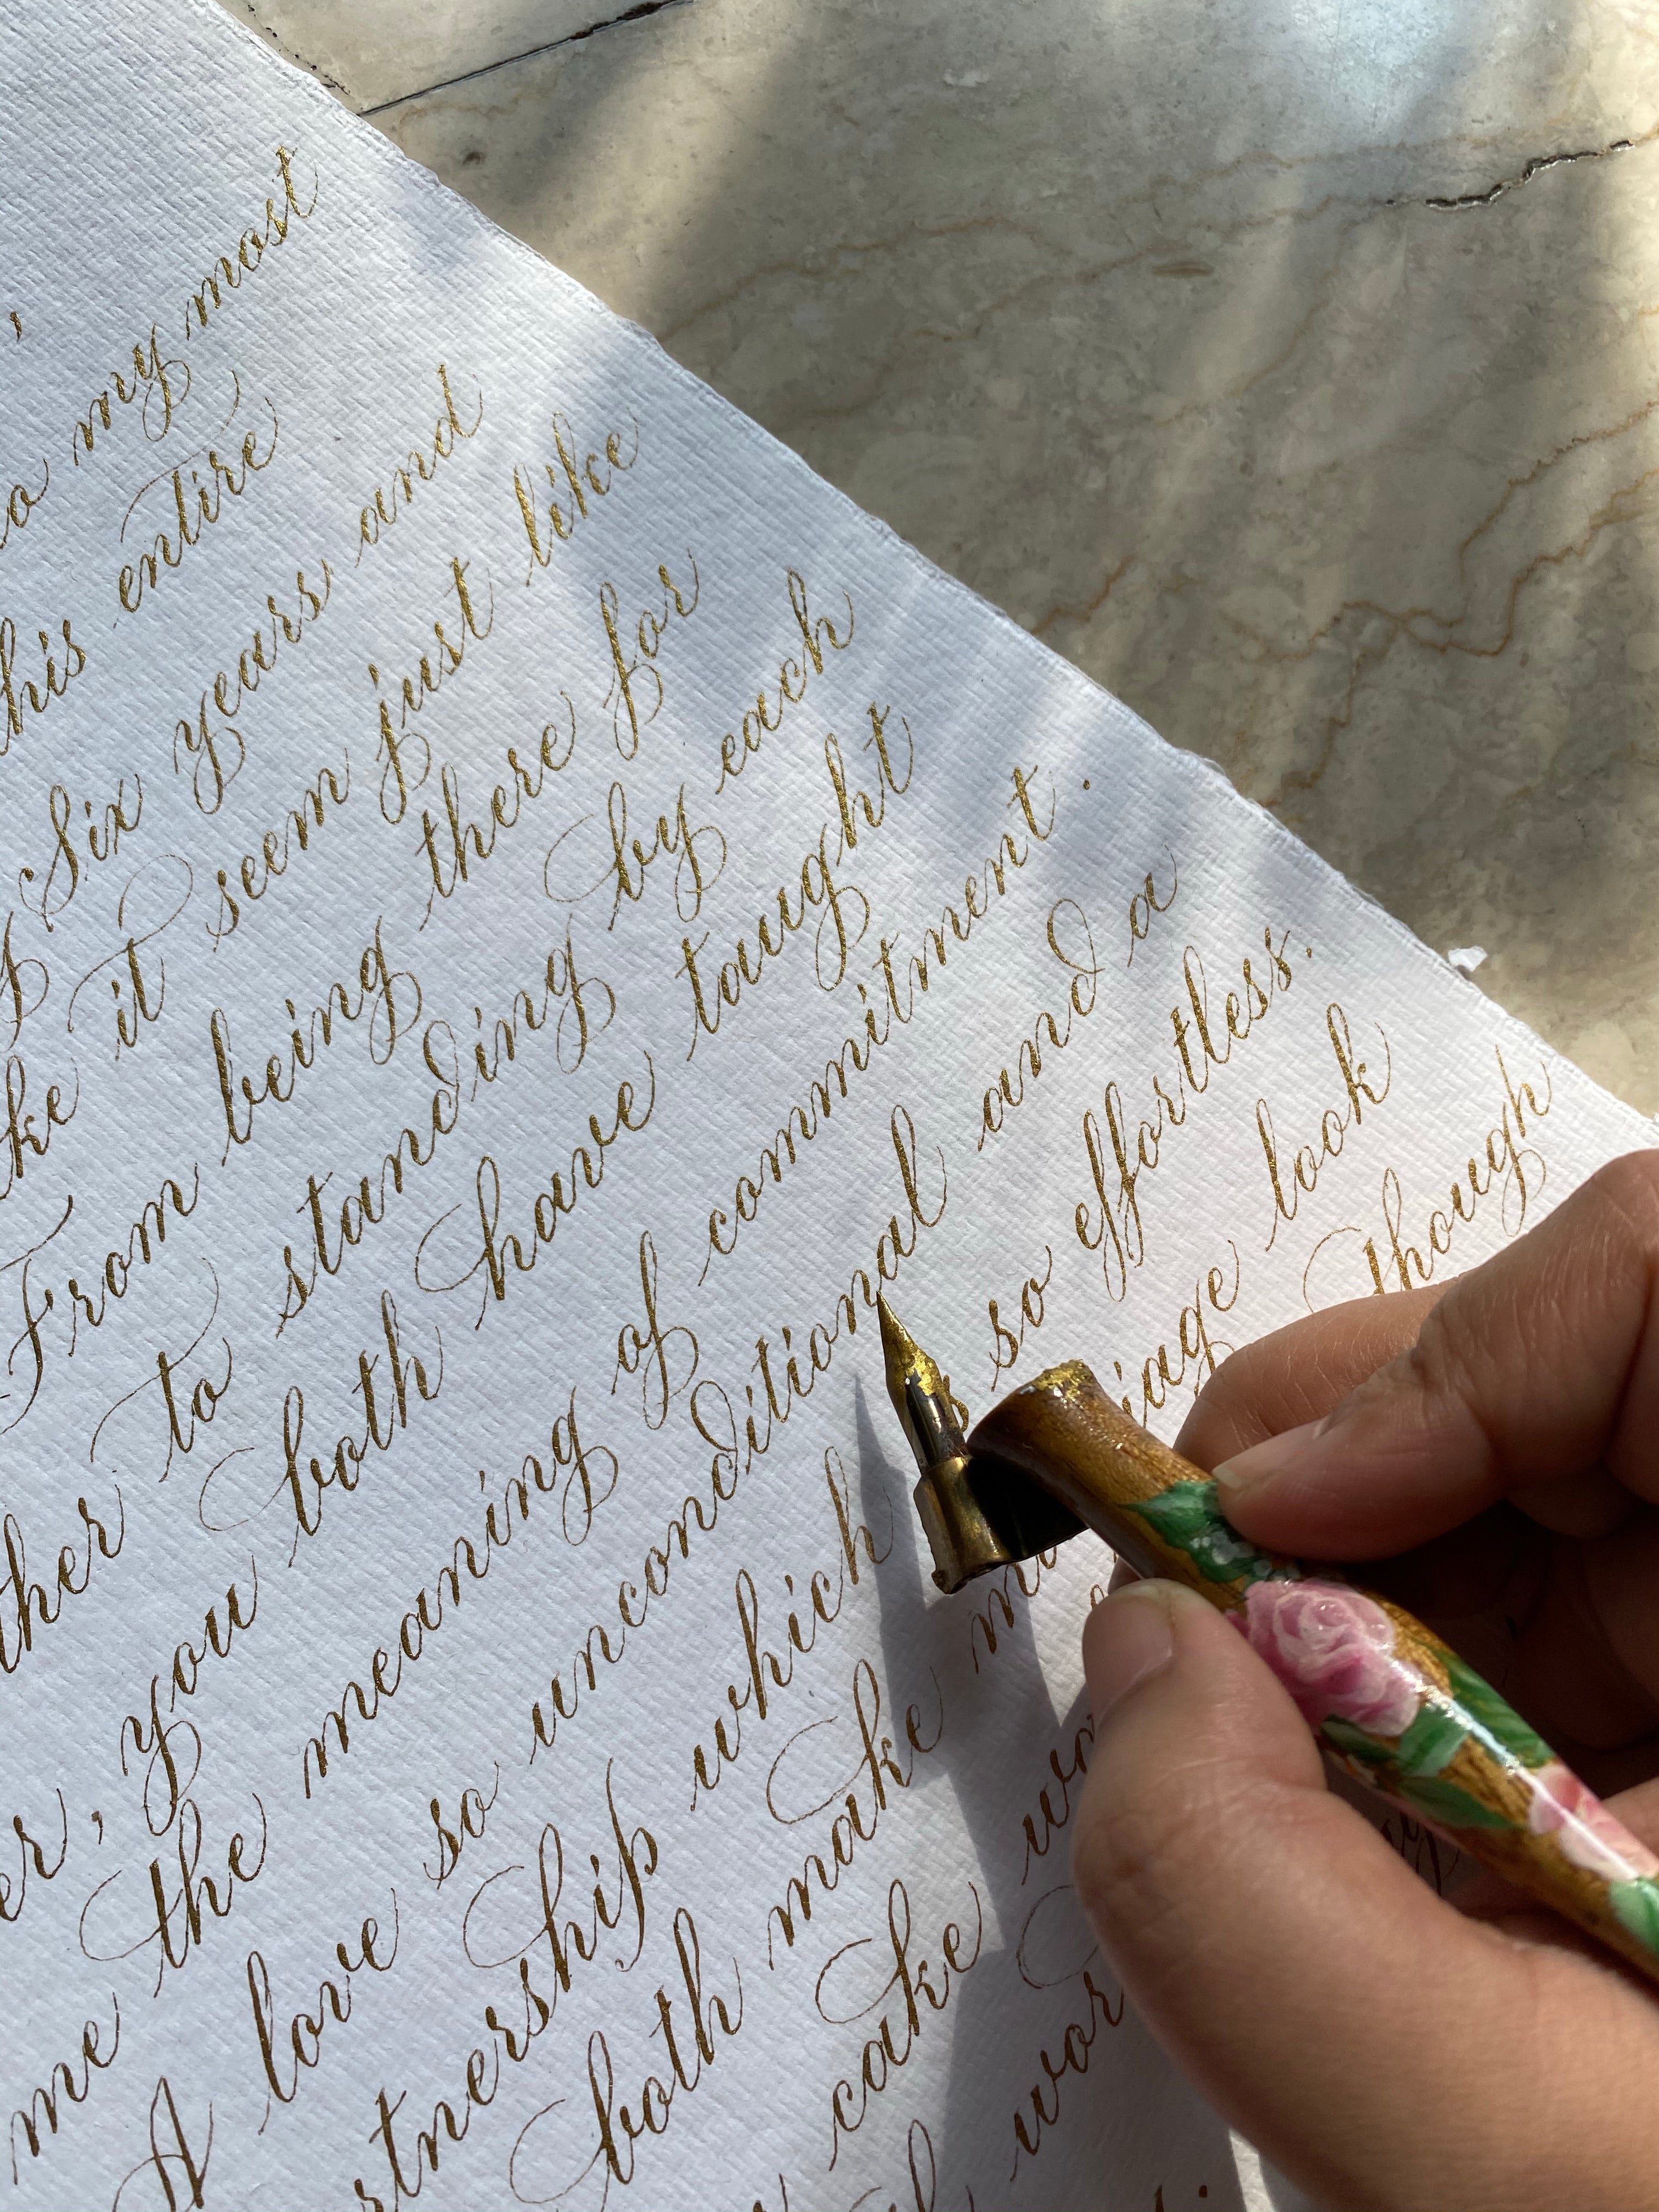 my most
his entire
Six years and
ke it seem just like
From being there for
ther to standing by each
er, you both have taught
me the meaning of commitment.
A love so unconditional and a
rtnership which so effortless.
both make iage look
cake Though
wor